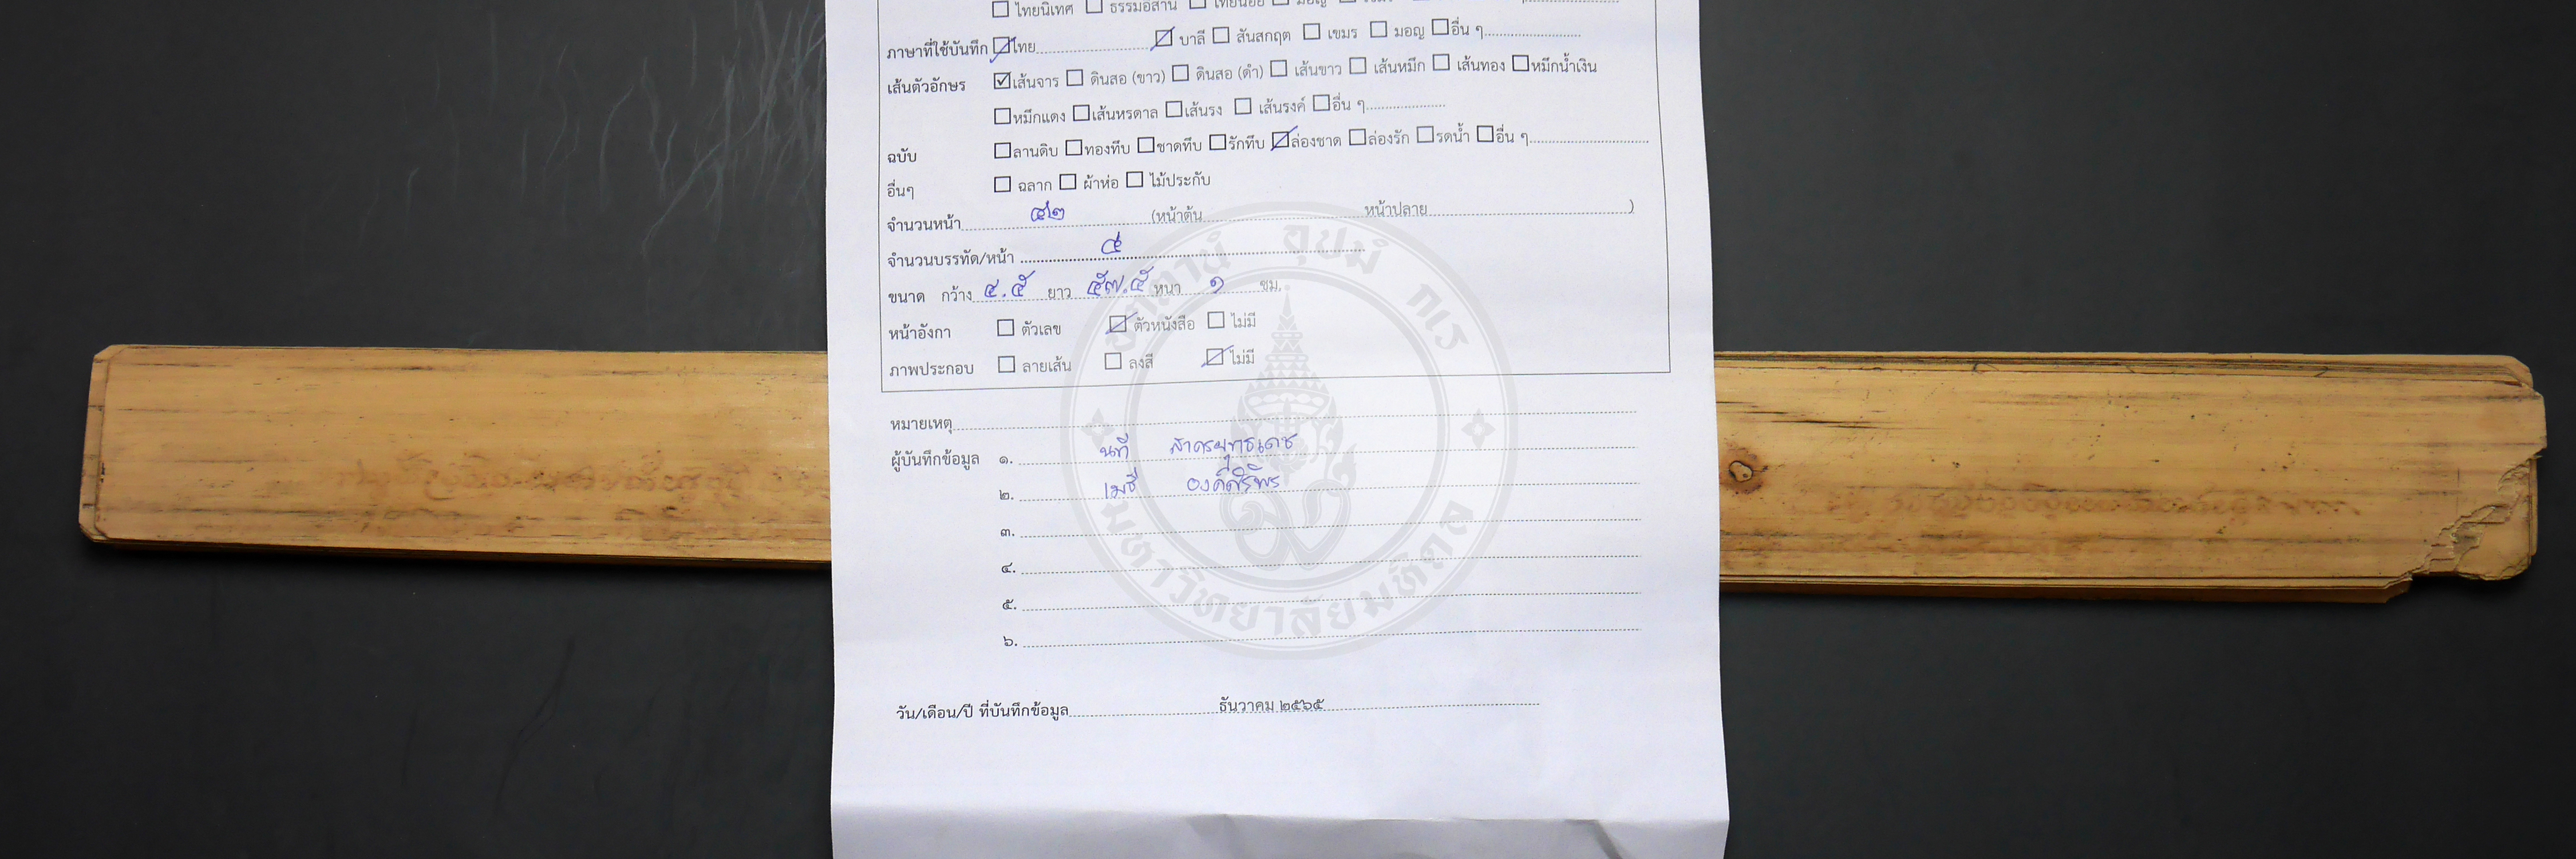 ☐ ไทยนิเทศ ☐ ธรรมอีสาน ☐ ไทยน้อย ☐ มอญ
ภาษาที่ใช้บันทึก ☑ ไทย ☑ บาลี ☐ สันสกฤต ☐ เขมร ☐ มอญ ☐ อื่น ๆ
เส้นตัวอักษร ☑ เส้นจาร ☐ ดินสอ (ขาว) ☐ ดินสอ (ดำ) ☐ เส้นขาว ☐ เส้นหมึก ☐ เส้นทอง ☐ หมึกน้ำเงิน
☐ หมึกแดง ☐ เส้นหรดาล ☐ เส้นรง ☐ เส้นรงค์ ☐ อื่น ๆ
ฉบับ ☐ ลานดิบ ☐ ทองทึบ ☐ ชาดทึบ ☐ รักทึบ ☑ ล่องชาด ☐ ล่องรัก ☐ รดน้ำ ☐ อื่น ๆ
อื่นๆ ☐ ฉลาก ☐ ผ้าห่อ ☐ ไม้ประกับ
จำนวนหน้า ๔๒ (หน้าต้น หน้าปลาย )
จำนวนบรรทัด/หน้า ๕
ขนาด กว้าง ๔.๕ ยาว ๕๗.๕ หนา ๑ ซม.
หน้าอังกา ☐ ตัวเลข ☑ ตัวหนังสือ ☐ ไม่มี
ภาพประกอบ ☐ ลายเส้น ☐ ลงสี ☑ ไม่มี
หมายเหตุ
ผู้บันทึกข้อมูล ๑. นที สาครยุทธเดช
๒. เมธี องค์ศิริพร
๓.
๔.
๕.
๖.
วัน/เดือน/ปี ที่บันทึกข้อมูล ธันวาคม ๒๕๖๕
อตฺตานํ อุปมํ กเร
มหาวิทยาลัยมหิดล